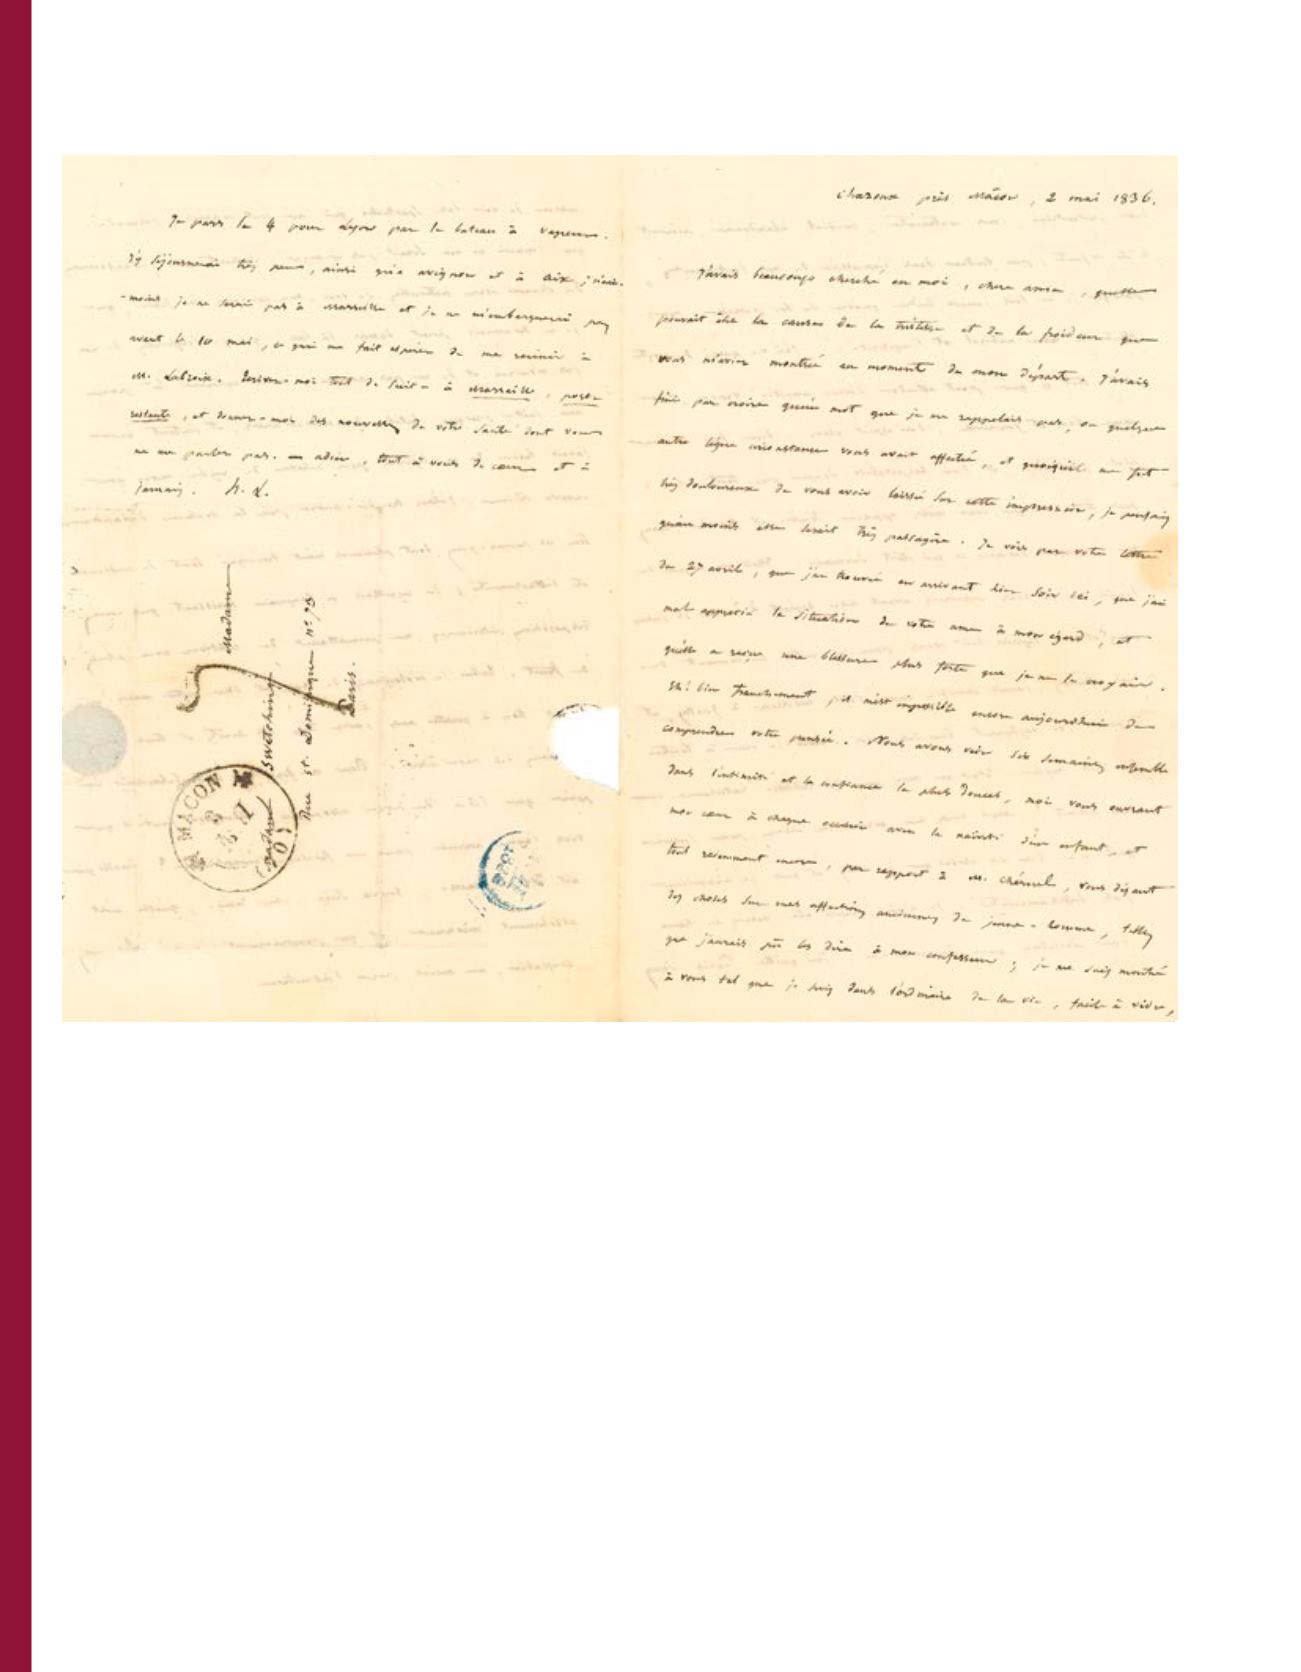 Chazoux près Mâcon, 2 mai 1836.
J'avais beaucoup cherché en moi, chère amie, quelle
pouvait être la cause de la tristesse et de la froideur que
vous m'aviez montrée au moment de mon départ. J'avais
fini par croire qu'un mot que je ne rappelais pas, ou quelque
autre légère circonstance vous avait affectée, et quoiqu'il me fut
très douloureux de vous avoir laissé sur cette impression, je pensais
qu'au moins elle serait très passagère. Je vois par votre lettre
du 27 avril, que j'ai trouvée en arrivant hier soir ici, que j'ai
mal apprécié la situation de votre ame à mon égard, et
qu'elle a reçue une blessure plus forte que je ne le croyais.
Eh! bien franchement, il m'est impossible encore aujourd'hui de
comprendre votre pensée. Nous avons vécu six semaines ensemble
dans l'intimité et la confiance la plus douces, moi vous ouvrant
mon cœur à chaque occasion avec la naïveté d'un enfant, et
tout récemment encore, par rapport à M. Chéruel, vous disant
des choses sur mes affections anciennes de jeune-homme, telles
que j'aurais pu les dire à mon confesseur; je me suis montré
à vous tel que je suis dans l'ordinaire de la vie, facile à vivre,
Je pars le 4 pour Lyon par le bateau à vapeur.
J'y séjournerai très peu, ainsi qu'à avignon et à aix; néan-
-moins je ne serai pas à Marseille et je ne m'embarquerai pas
avant le 10 mai, ce qui me fait espérer de me réunir à
M. . Ecrivez-moi tout de suite à Marseille, poste
restante, et donnez-moi des nouvelles de votre santé dont vous
ne me parlez pas. adieu, tout à vous de cœur et à
jamais. H. L.
Madame
Swetchine
Rue St. Dominique n° 73
Paris.
MACON